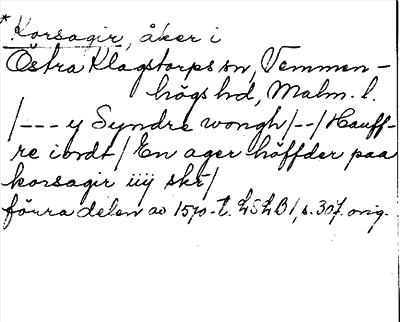 * Korsagir, åker i
Östra Klagstorps sn, Vemmen-
högs hd, Malm. l.
/--- y Syndre wongh /--/ Hauff-
re iordt / En ager höffder paa
korsagir iiij skr/
förra delen av 1570-t. LSLB I, s. 307. orig.